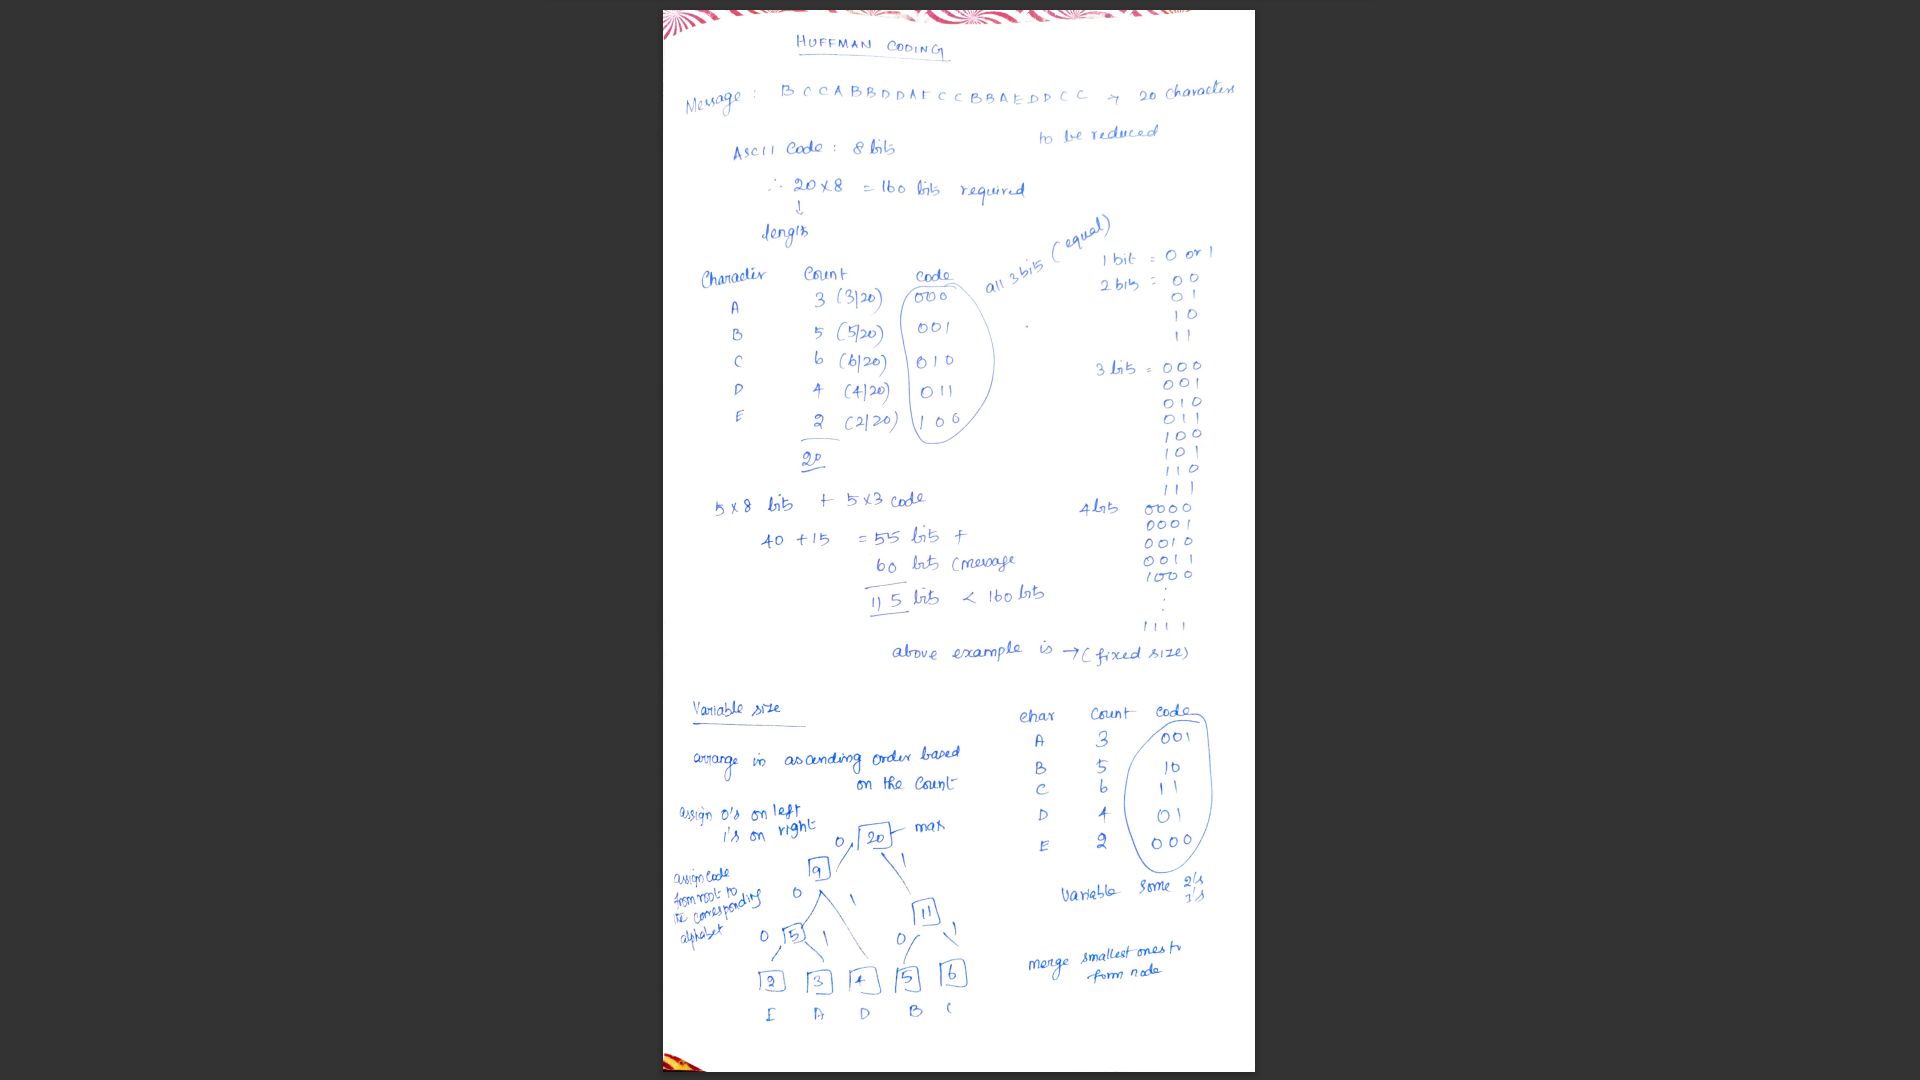 HUFFMAN CODING
Message : B C C A B B D D A E C C B B A E D D C C → 20 characters
to be reduced
ASCII Code : 8 bits
∴ 20 x 8 = 160 bits required
↓
length
Character Count code
all 3 bits (equal)
A 3 (3/20) 000
B 5 (5/20) 001
C 6 (6/20) 010
D 4 (4/20) 011
E 2 (2/20) 100
20
1 bit = 0 or 1
2 bits = 00
01
10
11
3 bits = 000
001
010
011
100
101
110
111
4 bits 0000
0001
0010
0011
1000
.
.
.
1111
5 x 8 bits + 5 x 3 code
40 + 15 = 55 bits +
60 bits (message
115 bits < 160 bits
above example is → (fixed size)
Variable size
arrange in ascending order based
on the count
assign 0's on left
1's on right
assign code
from root to
the corresponding
alphabet
0 20 max
9 1
0 1
11
0 5 1 0 1
2 3 4 5 6
E A D B C
char Count code
A 3 001
B 5 10
C 6 11
D 4 01
E 2 000
Variable some 2's
3's
merge smallest ones to
form node